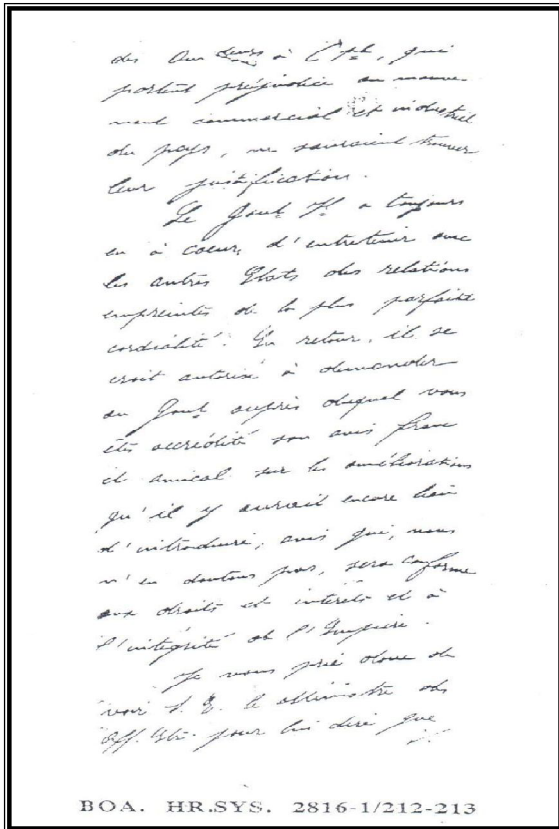 des à Cple, qui
portent préjudice au mouve-
ment commercial et industriel
du pays, ne sauraient trouver
leur justification.
Le Gouvt Il a toujours
eu à coeur, d'entretenir avec
les autres Etats des relations
empreintes de la plus parfaite
cordialité. En retour, il se
croit autorisé à demander
au Gouvt auprès duquel vous
êtes accrédité son avis franc
et amical sur les améliorations
qu'il y aurait encore lieu
d'introduire, avis qui, nous
n'en doutons pas, sera conforme
aux droits et intérêts et à
l'intégrité de l'Empire.
Je vous prie donc de
voir S. E. le Ministre des
Aff. Etr. pour lui dire que
BOA. HR.SYS. 2816-1/212-213